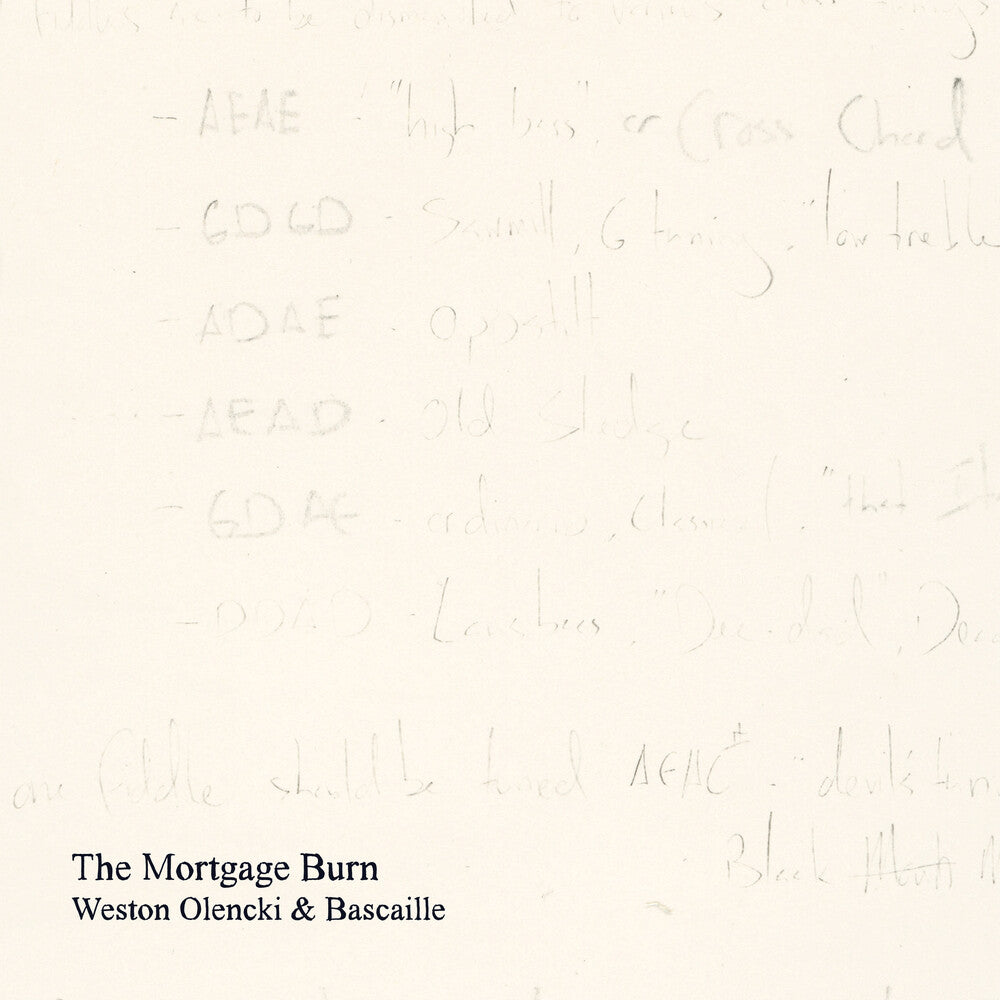 fiddles are to be dismantled to various cross tunings
- AEAE - "high bass", or Cross Chord
- GDGD - Sawmill, G tuning, "low treble
- ADAE -
- AEAD - Old Sledge
- GDAE - ordinary, Classical, "that
- DDAD - "Dee-dad", Dead
one fiddle should be tuned AEAC# - "devil's tun
Black
The Mortgage Burn
Weston Olencki & Bascaille